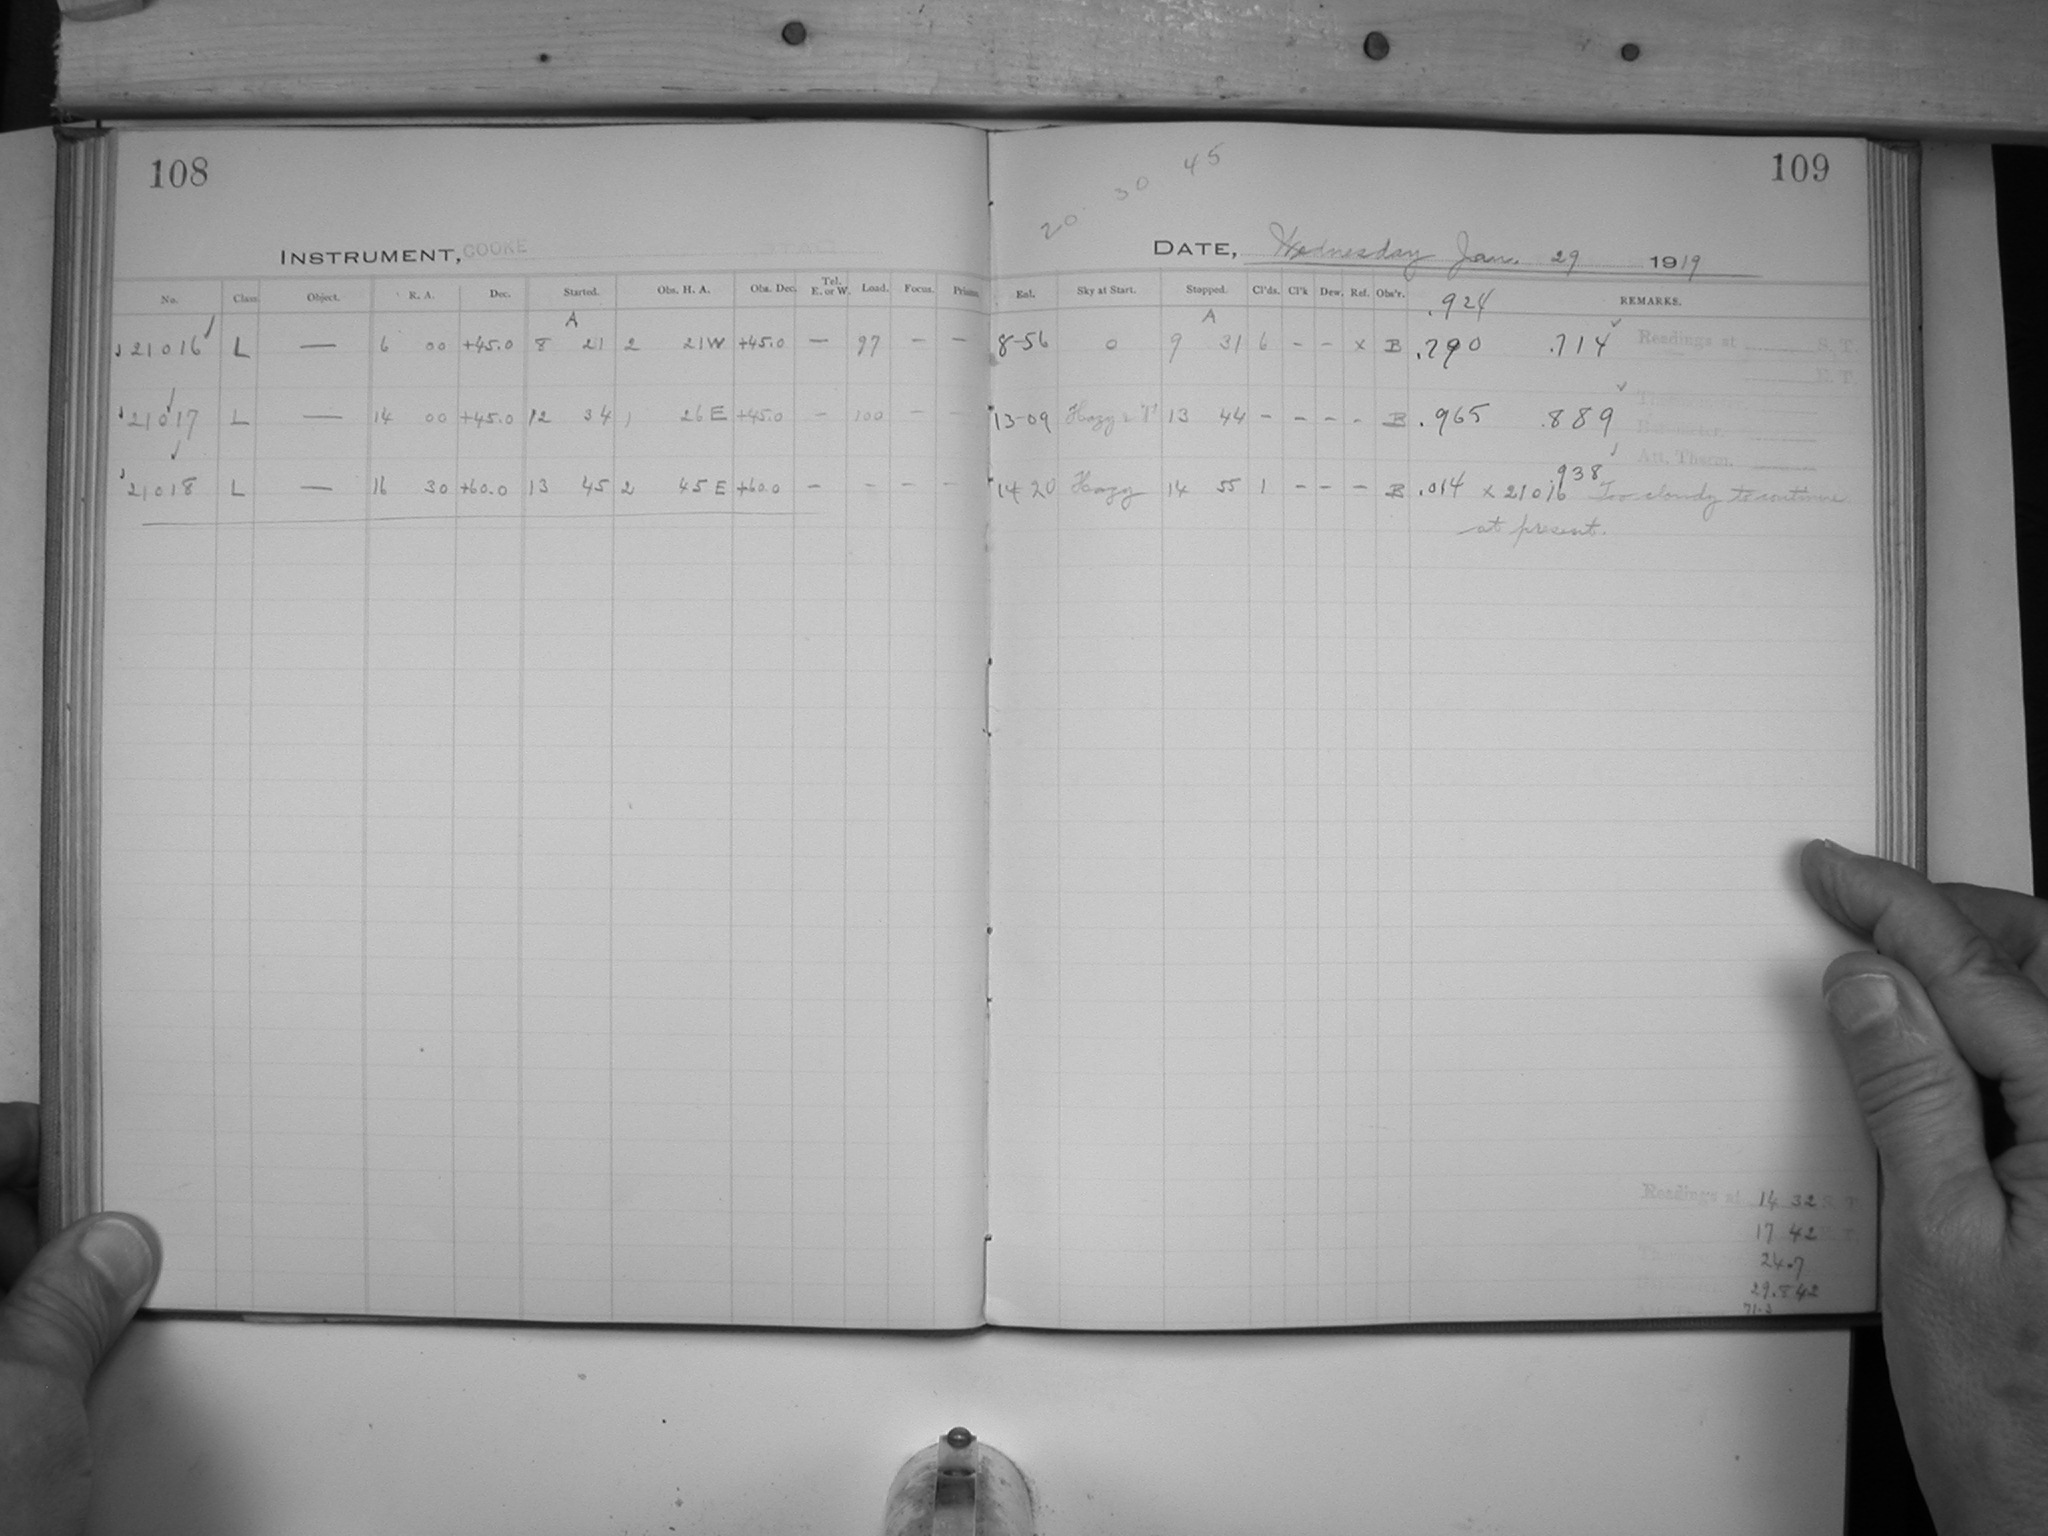 108
INSTRUMENT, COOKE
No. Class Object. R. A. Dec. Started. Obs. H. A. Obs. Dec. Tel. E. or W. Load. Focus. Prisms.
A
21016 L — 6 00 +45.0 8 21 2 21W +45.0 — 97 — —
21017 L — 14 00 +45.0 12 34 1 26E +45.0 — 100 — —
21018 L — 16 30 +60.0 13 45 2 45E +60.0 — — — —
109
20 30 45
DATE, Wednesday Jan. 29 1919
Eal. Sky at Start. Stopped. Cl'ds. Cl'k Dew. Ref. Obs'r. .924 REMARKS.
A
8-56 0 9 31 6 – – x B .790 .714 Readings at S. T.
13-09 Hazy 13 44 – – – – B .965 .889
Att. Therm.
.938
14 20 Hazy 14 55 1 – – – B .014 x 21016 Too cloudy to continue
at present.
Readings at 14 32 S. T.
17 42
24.7
29.842
71.2